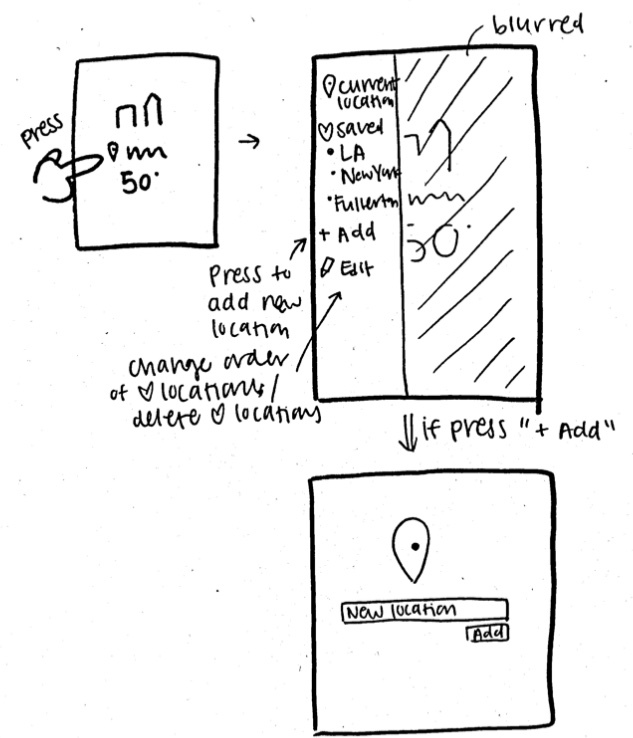 blurred
press
50°
current
location
saved
• LA
• New York
• Fullerton
+ Add
Edit
50°
Press to
add new
location
change order
of ♡ locations/
delete ♡ locations
if press "+ Add"
New location
Add